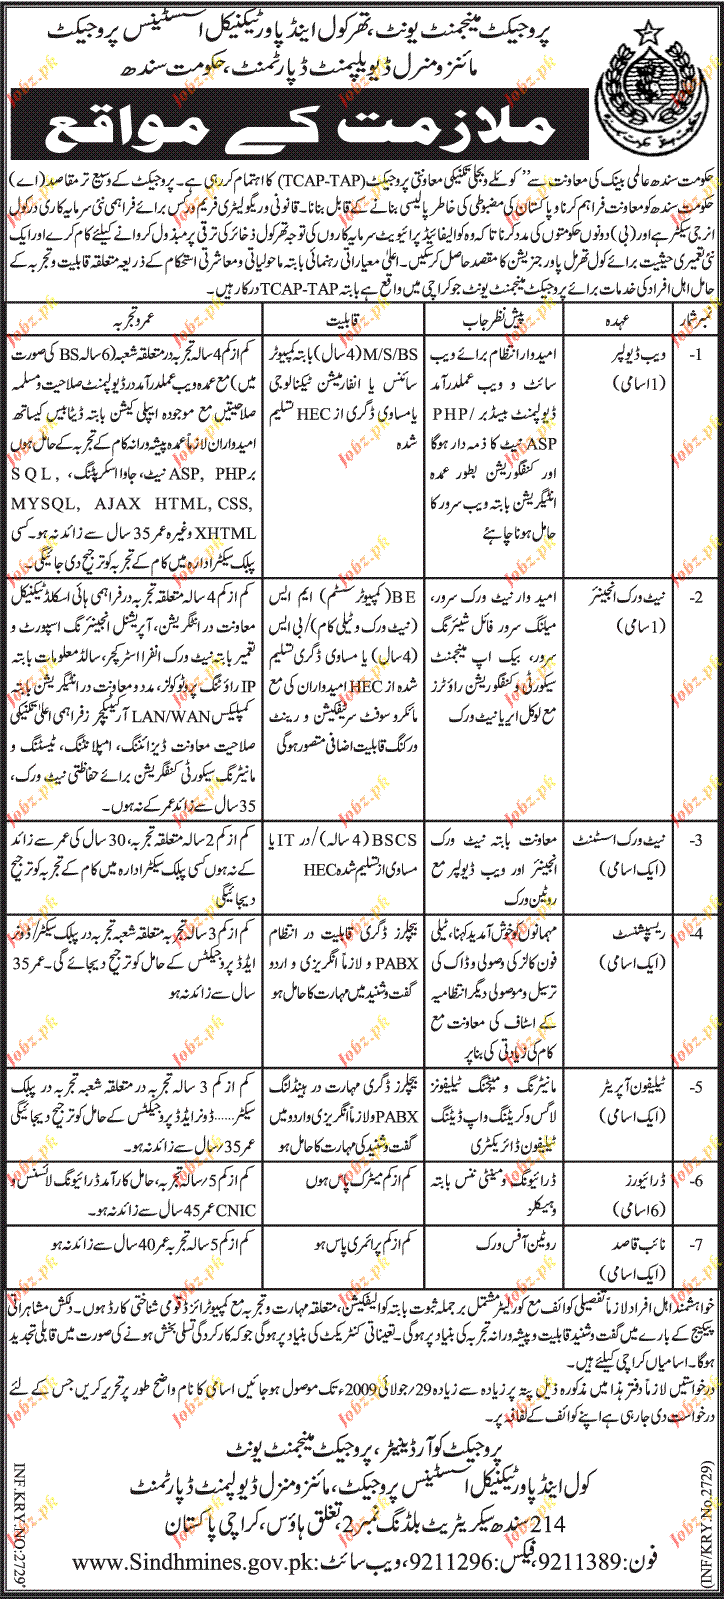 پروجیکٹ مینجمنٹ یونٹ، تھرکول اینڈ پاور ٹیکنیکل اسسٹینس پروجیکٹ
مائنز و منرل ڈیویلپمنٹ ڈپارٹمنٹ، حکومت سندھ
ملازمت کے مواقع
حکومت سندھ عالمی بینک کی معاونت سے ’’کوئلے و بجلی تکنیکی معاونتی پروجیکٹ (TCAP-TAP) کا اہتمام کر رہی ہے۔ پروجیکٹ کے وسیع تر مقاصد (اے)
حکومت سندھ کو معاونت فراہم کرنا و پاکستان کی مضبوطی کی خاطر پالیسی بنانے کے قابل بنانا۔ قانونی و ریگولیٹری فریم ورکس برائے فراہمی نئی سرمایہ کاری در کول
انرجی سیکٹر ہے اور (بی) دونوں حکومتوں کی مدد کرنا تاکہ وہ کوالیفائیڈ پرائیویٹ سرمایہ کاروں کی توجہ تھر کول ذخائر کی ترقی پر مبذول کروانے کیلئے کام کرے اور ایک
نئی تعمیری حیثیت برائے کول تھرمل پاور جنریشن کا مقصد حاصل کرسکیں۔ اعلیٰ معیاراتی رہنمائی بابتہ ماحولیاتی و معاشرتی استحکام کے ذریعہ متعلقہ قابلیت و تجربہ کے
حامل اہل افراد کی خدمات برائے پروجیکٹ مینجمنٹ یونٹ جو کراچی میں واقع ہے بابتہ TCAP-TAP درکار ہیں۔
نمبر شمار عہدہ پیش نظر جاب قابلیت عمر و تجربہ
1- ویب ڈیولپر
(1 اسامی)
امیدوار انتظام برائے ویب
سائٹ و ویب عملدرآمد
ڈیولپمنٹ بیسڈ بر PHP/
ASP نیٹ کا ذمہ دار ہوگا
اور کنفگوریشن بطور عمدہ
انٹیگریشن بابتہ ویب سرور کا
حامل ہونا چاہئے
M/S/BS (4 سال) بابتہ کمپیوٹر
سائنس یا انفارمیشن ٹیکنالوجی
یا مساوی ڈگری از HEC تسلیم
شدہ
کم از کم 4 سالہ تجربہ در متعلقہ شعبہ (6 سالہ BS کی صورت
میں) مع عمدہ ویب عملدرآمد در ڈیولپمنٹ صلاحیت و مسلمہ
صلاحیتیں مع موجودہ ایپلی کیشن بابتہ ڈیٹا بیس کیساتھ
امیدواران لازماً عمدہ پیشہ ورانہ کام کے تجربہ کے حامل ہوں
بر ASP, PHP نیٹ، جاوا اسکرپٹنگ، SQL,
MYSQL, AJAX HTML, CSS,
XHTML وغیرہ عمر 35 سال سے زائد نہ ہو۔ کسی
پبلک سیکٹر ادارہ میں کام کے تجربہ کو ترجیح دی جائیگی۔
2- نیٹ ورک انجینئر
(1 اسامی)
امیدوار نیٹ ورک سرور،
میلنگ سرور فائل شیئرنگ
سرور، بیک اپ مینجمنٹ
سیکورٹی و کنفگوریشن راؤٹرز
مع لوکل ایریا نیٹ ورک
BE (کمپیوٹر سسٹم) ایم ایس
(نیٹ ورک و ٹیلی کام) / بی ایس
(4 سال) یا مساوی ڈگری تسلیم
شدہ از HEC امیدواران کی مع
مائکروسوفٹ سرٹیفکیشن و رینٹ
ورکنگ قابلیت اضافی متصور ہوگی
کم از کم 4 سالہ متعلقہ تجربہ در فراہمی ہائی اسکلڈ ٹیکنیکل
معاونت در انٹگریشن، آپریشنل انجینئرنگ اسپورٹ و
تعمیر بابتہ نیٹ ورک انفرا اسٹرکچر، سالڈ معلومات بابتہ
IP راؤٹنگ پروٹوکولز، مدد و معاونت در انٹیگریشن بابتہ
کمپلیکس LAN/WAN آرکیٹیکچرز فراہمی اعلیٰ تکنیکی
صلاحیت معاونت ڈیزائننگ، امپلانٹنگ، ٹیسٹنگ و
مانیٹرنگ سیکورٹی کنفگریشن برائے حفاظتی نیٹ ورک،
35 سال سے زائد عمر کے نہ ہوں۔
3- نیٹ ورک اسسٹنٹ
(ایک اسامی)
معاونت بابتہ نیٹ ورک
انجینئر اور ویب ڈیولپر مع
روٹین ورک
BSCS (4 سالہ) / در IT یا
مساوی از تسلیم شدہ HEC
کم از کم 2 سالہ متعلقہ تجربہ، 30 سال کی عمر سے زائد
کے نہ ہوں کسی پبلک سیکٹر ادارہ میں کام کے تجربہ کو ترجیح
دیجائیگی
4- ریسپشنسٹ
(ایک اسامی)
مہمانوں کو خوش آمدید کہنا، ٹیلی
فون کالز کی وصولی و ڈاک کی
ترسیل و موصولی دیگر انتظامیہ
کے اسٹاف کی معاونت مع
کام کی زیادتی کی بنا پر
بیچلرز ڈگری قابلیت در انتظام
PABX و لازماً انگریزی و اردو
گفت و شنید میں مہارت کا حامل ہو
کم از کم 3 سالہ تجربہ متعلقہ شعبہ تجربہ در پبلک سیکٹر/ ڈونر
ایڈڈ پروجیکٹس کے حامل کو ترجیح دیجائے گی۔ عمر 35
سال سے زائد نہ ہو
5- ٹیلیفون آپریٹر
(ایک اسامی)
مانیٹرنگ و میچنگ ٹیلیفونز
لاگس و کریٹنگ و اپ ڈیٹنگ
ٹیلیفون ڈائریکٹری
بیچلرز ڈگری مہارت در ہینڈلنگ
PABX و لازماً انگریزی و اردو میں
گفت و شنید کی مہارت کا حامل ہو
کم از کم 3 سالہ تجربہ در متعلقہ شعبہ تجربہ در پبلک
سیکٹر...... ڈونر ایڈڈ پروجیکٹس کے حامل کو ترجیح دیجائیگی
عمر 35/ سال سے زائد نہ ہو
6- ڈرائیورز
(6 اسامی)
ڈرائیونگ و مینٹی ننس بابتہ
وہیکلز
کم از کم میٹرک پاس ہوں
کم از کم 5/ سالہ تجربہ، حامل کارآمد ڈرائیونگ لائسنس و
CNIC عمر 45 سال سے زائد نہ ہو۔
7- نائب قاصد
(ایک اسامی)
روٹین آفس ورک
کم از کم پرائمری پاس ہو
کم از کم 5 سالہ تجربہ عمر 40 سال سے زائد نہ ہو
خواہشمند اہل افراد لازماً تفصیلی کوائف مع کور لیٹر مشتمل بر جملہ ثبوت بابتہ کوالیفکیشن، متعلقہ مہارت و تجربہ مع کمپیوٹرائزڈ قومی شناختی کارڈ ہوں۔ دلکش مشاہراتی
پیکیج کے بارے میں گفت و شنید قابلیت و پیشہ ورانہ تجربہ کی بنیاد پر ہوگی۔ تعیناتی کنٹریکٹ کی بنیاد پر ہوگی جو کہ کارکردگی تسلی بخش ہونے کی صورت میں قابلی تجدید
ہوگا۔ اسامیاں کراچی کیلئے ہیں۔
درخواستیں لازماً دفتر ہذا میں مذکورہ ذیل پتہ پر زیادہ سے زیادہ 29/جولائی 2009ء تک موصول ہوجائیں اسامی کا نام واضح طور پر تحریر کریں جس کے لئے
درخواست دی جارہی ہے اپنے کوائف کے لفافہ پر۔
پروجیکٹ کوآرڈینیٹر، پروجیکٹ مینجمنٹ یونٹ
کول اینڈ پاور ٹیکنیکل اسسٹینس پروجیکٹ، مائنز و منرل ڈیولپمنٹ ڈپارٹمنٹ
214 سندھ سیکریٹریٹ بلڈنگ نمبر 2، تغلق ہاؤس، کراچی پاکستان
فون: 9211389، فیکس: 9211296، ویب سائٹ: www.Sindhmines.gov.pk
INF.KRY.NO:2729
(INF/KRY.No.2729)
Jobz.pk